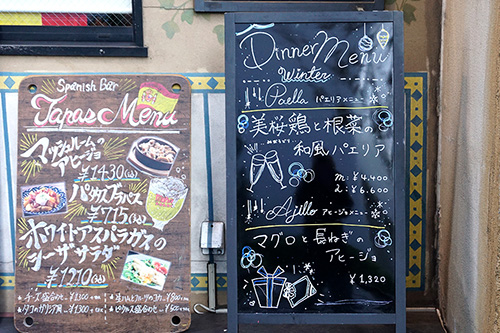 Spanish Bar
Tapas Menu
マッシュルームの
アヒージョ
¥1430(込)
パタタスブラバス
¥715(込)
ホワイトアスパラガスの
シーザーサラダー
¥1210(込)
★チーズ盛合わせ ¥1300
¥800
¥1300
★ピクルス盛合せ ¥500
Dinner Menu
Winter
Paella パエリアメニュー
美桜鶏と根菜の
和風パエリア
M: ¥4,400
L: ¥6,600
Ajillo アヒージョメニュー
マグロと長ねぎの
アヒージョ
¥1,320